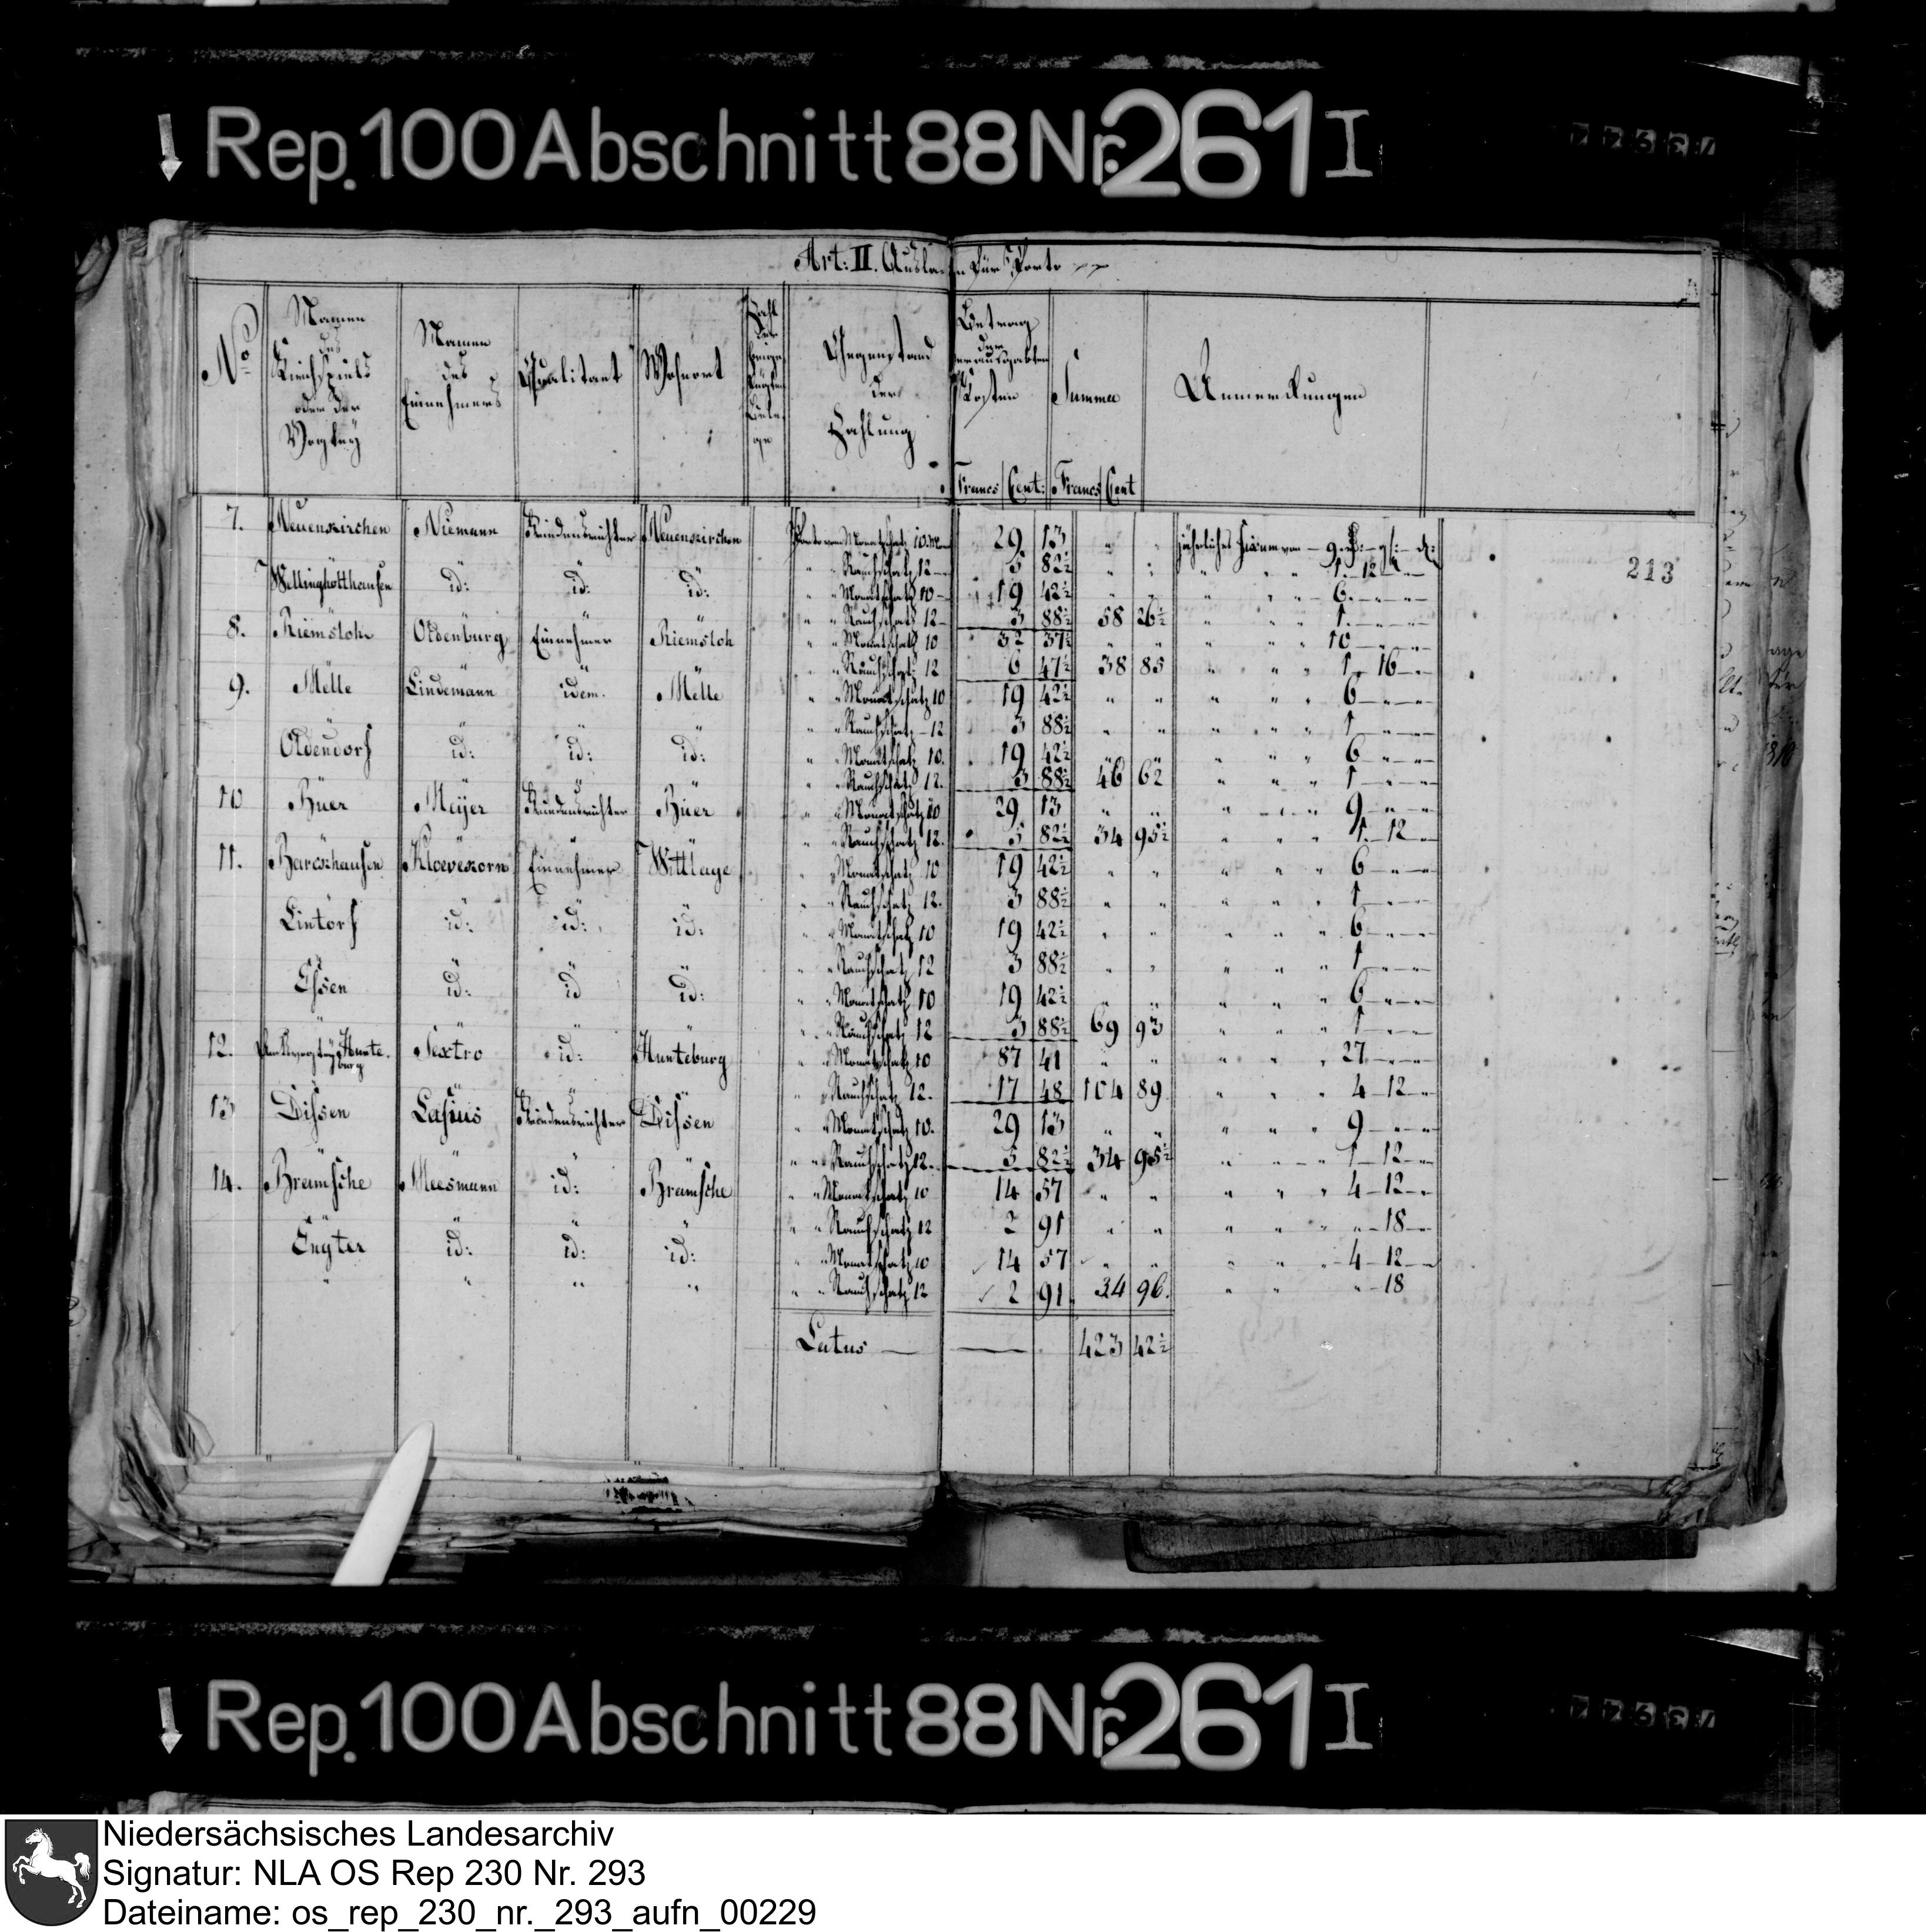 Rep. 100 Abschnitt 88 Nr. 261 I
Art: II. Ausla en für Porto
No
Namen des Kirchspiels oder der Vogtey
Namen des Einnehmers
Qualitaet
Wohnort
Zahl der
Gegenstand der Zahlung
Betrag der verausgabten Posten
Summa
Anmerkungen
Francs Cent: Francs Cent
7. Neuenkirchen Niemann Friedensrichter Neuenkirchen Porto vom Monatschatz 10 29 13 " " jährliches Fixum von 9
" " Rauchschatz 12 5 82½ " " " " " 1 12
Wellingholthausen id: id: id: " " Monatschatz 10 19 42½ " " " " " 6
" " Rauchschatz 12 3 88½ 58 26½ " " " 1
8. Riemsloh Oldenburg Einnehmer Riemsloh " " Monatschatz 10 32 37½ " " " " " 10
" " Rauchschatz 12 6 47½ 38 85 " " " 1 16
9. Melle Lindemann idem. Melle " " Monatschatz 10 19 42½ " " " " " 6
" " Rauchschatz 12 3 88½ " " " " " 1
Oldendorf id: id: id: " " Monatschatz 10. 19 42½ " " " " " 6
" " Rauchschatz 12. 3 88½ 46 62 " " " 1
10 Büer Meyer Friedensrichter Büer " " Monatschatz 10 29 13 " " " " " 9
" " Rauchschatz 12. 5 82½ 34 95½ " " " 1 12
11. Barckhausen Kloevekorn Einnehmer Wittlage " " Monatschatz 10 19 42½ " " " " " 6
" " Rauchschatz 12. 3 88½ " " " " " 1
Lintorf id: id: id: " " Monatschatz 10 19 42½ " " " " " 6
" " Rauchschatz 12 3 88½ " " " " " 1
Essen id: id id: " " Monatschatz 10 19 42½ " " " " " 6
" " Rauchschatz 12 3 88½ 69 93 " " " 1
12. Hunteburg Sextro id: Hunteburg " " Monatschatz 10 87 41 " " " " " 27
" " Rauchschatz 12. 17 48 104 89 " " " 4 12
13 Dissen Lasius Friedensrichter Dissen " " Monatschatz 10. 29 13 " " " " " 9
" " Rauchschatz 12. 5 82½ 34 95½ " " " 1 12
14. Bramsche Meesmann id: Bramsche " " Monatschatz 10 14 57 " " " " " 4 12
" " Rauchschatz 12 2 91 " " " " " " 18
Engter id: id: id: " " Monatschatz 10 14 57 " " " " " 4 12
" " " " " " Rauchschatz 12 2 91 34 96. " " " 18
Latus 423 42½
213
Rep. 100 Abschnitt 88 Nr. 261 I
Niedersächsisches Landesarchiv
Signatur: NLA OS Rep 230 Nr. 293
Dateiname: os_rep_230_nr._293_aufn_00229